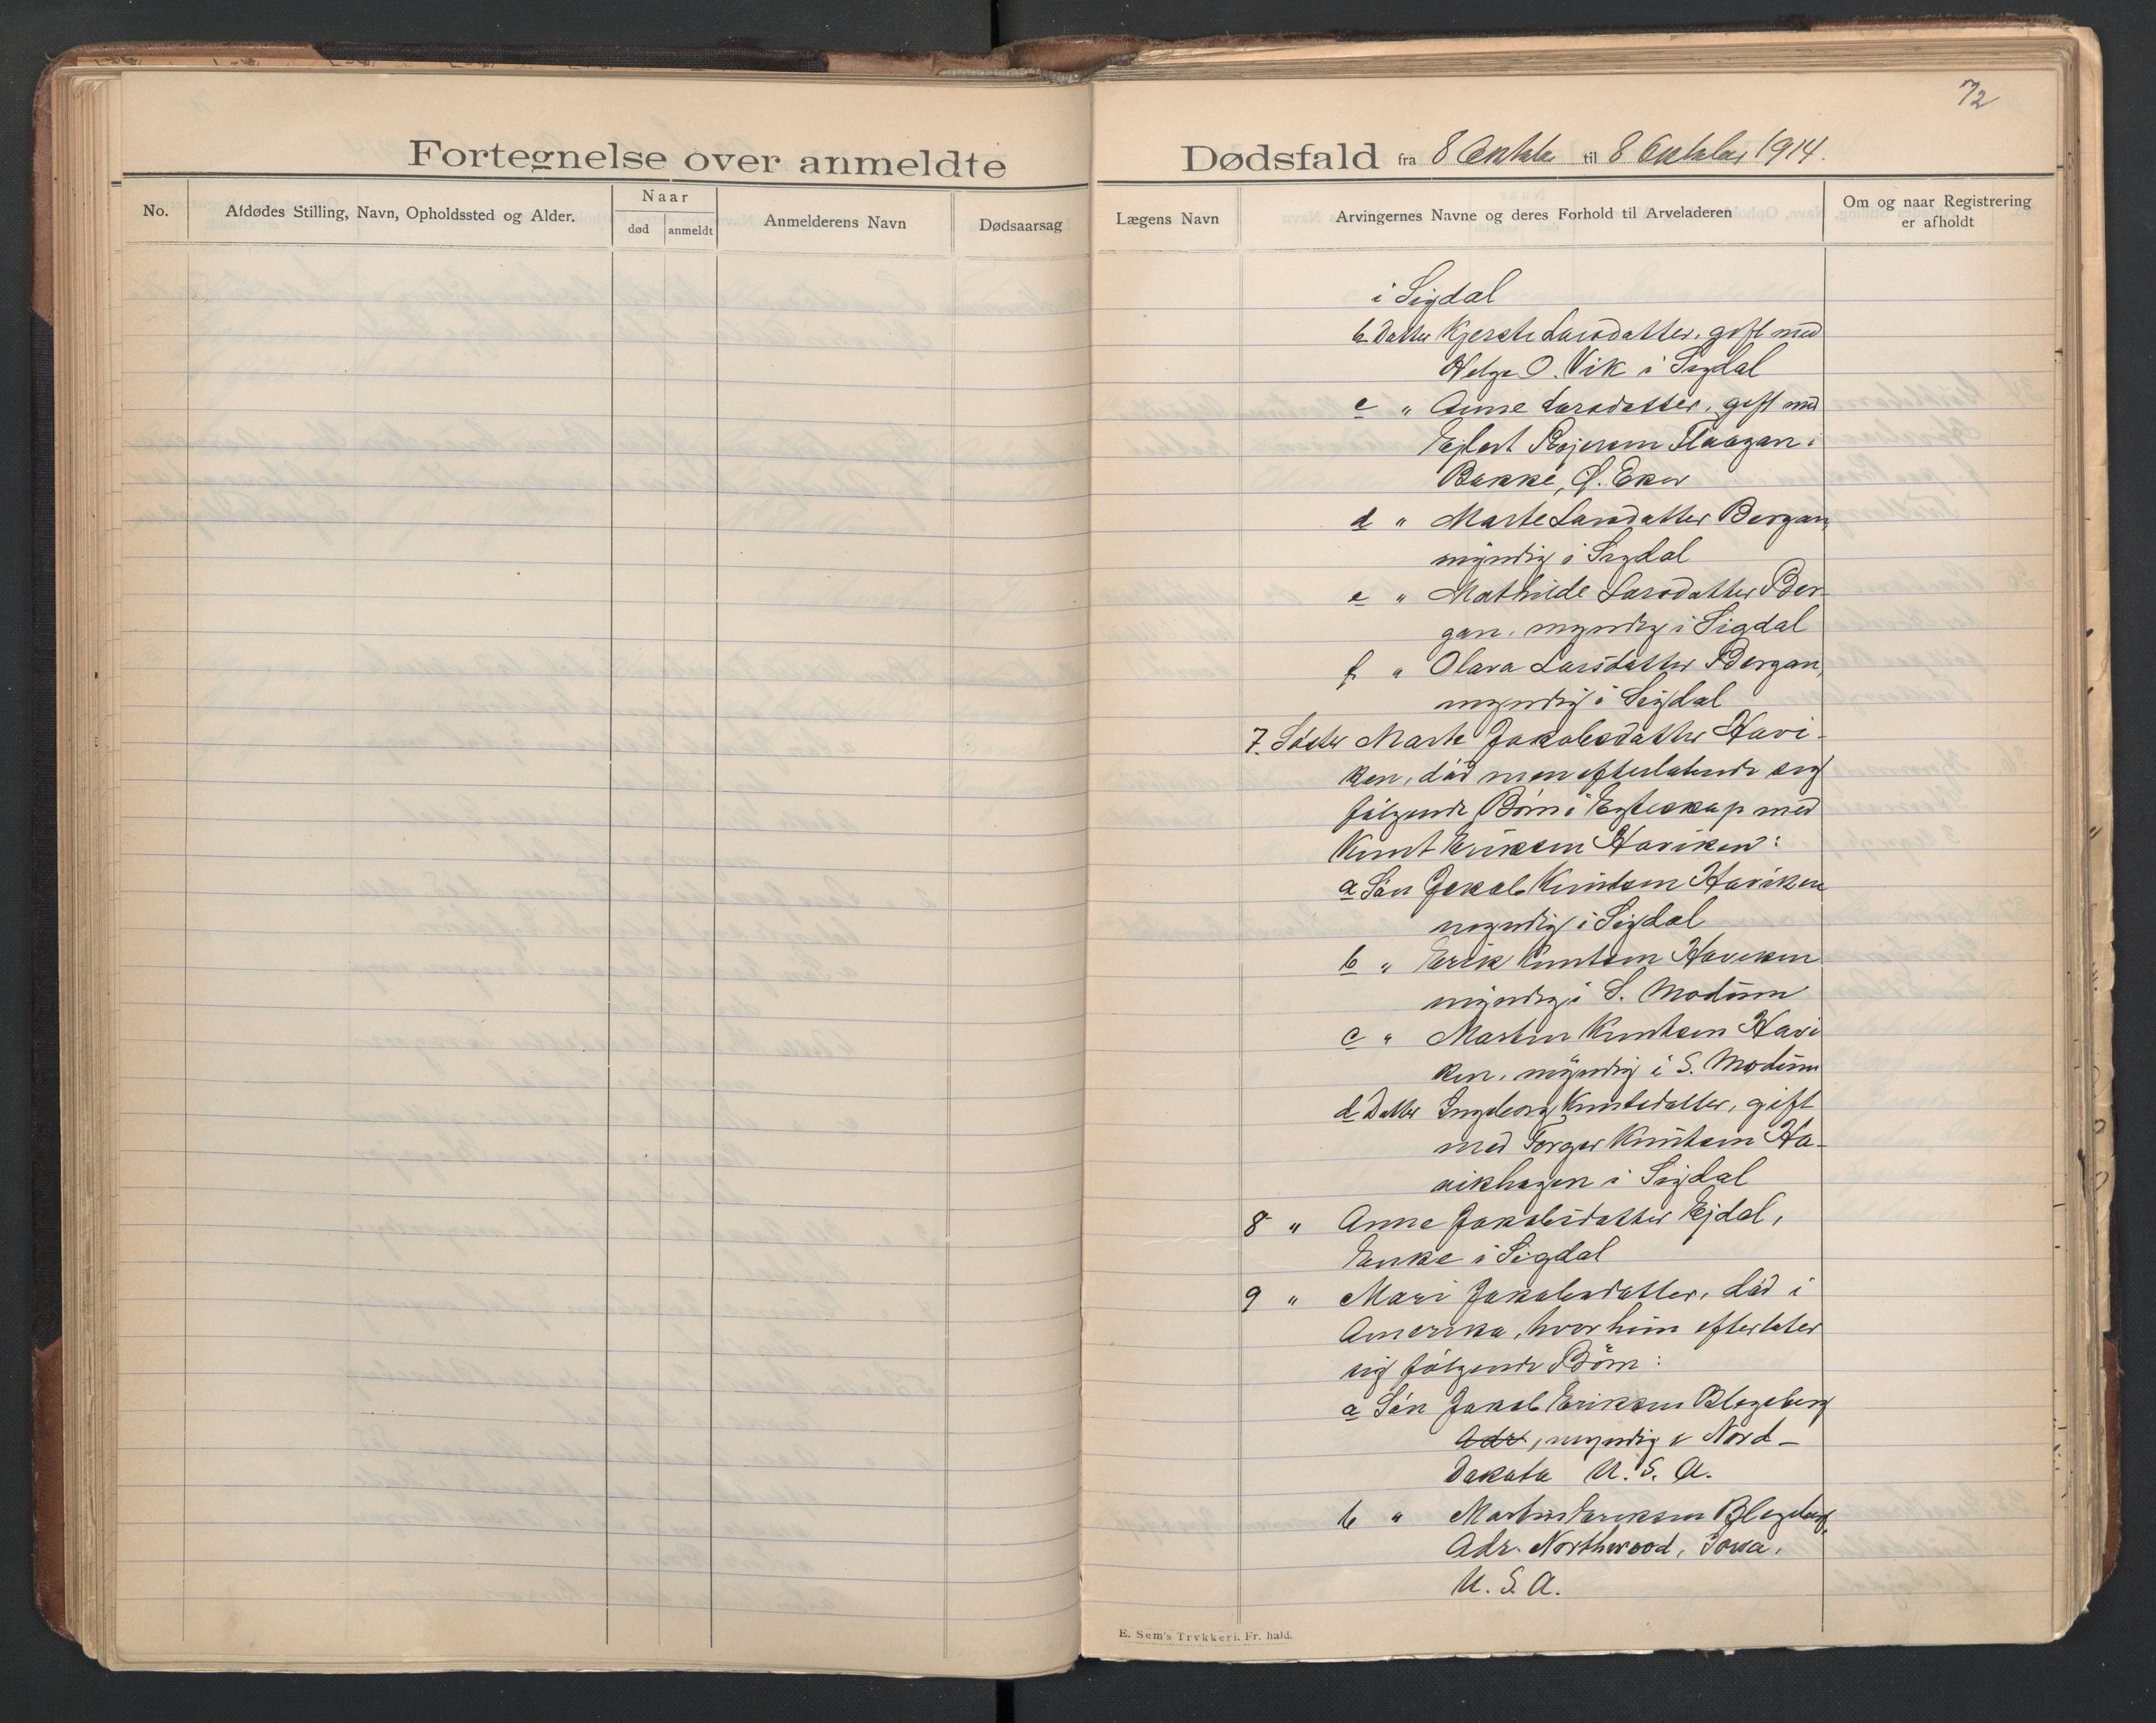 72
Fortegnelse over anmeldte
Dødsfald fra 8 Oktober til 8 Oktober 1914.
No.
Afdødes Stilling, Navn, Opholdssted og Alder.
Naar
død
anmeldt
Anmelderens Navn
Dødsaarsag
Lægens Navn
Arvingernes Navne og deres Forhold til Arveladeren
Om og naar Registrering
er afholdt
i Sigdal
b Datter Kjersti Larsdatter, gift med
Helge O. Vik i Sigdal
c " Anne Larsdatter, gift med
Ejlert Flaagan i
Bakke, Ø. Eker
d " Marte Larsdatter Bergan,
myndig i Sigdal
e " Mathilde Larsdatter Ber-
gan, myndig i Sigdal
f " Olava Larsdatter Bergan,
myndig i Sigdal
7. Søster Marte Jakobsdatter Havi-
ken, död men efterlatende sig
følgende Børn i Egteskap med
Knut Eriksen Haviken:
a Søn Jakob Knutsen Haviken
myndig i Sigdal
b " Erik Knutsen Haviken
myndig i S. Modum
c " Martin Knutsen Havi
ken, myndig i S. Modum
d Datter Ingeborg Knutsdatter, gift
med Torger Knutsen Ha-
vikhagen i Sigdal
8 " Anne Jakobsdatter Ejdal,
Enke i Sigdal
9 " Mari Jakobsdatter, död i
Amerika, hvor hun efterlater
sig følgende Børn:
a Søn Jakob Eriksen Blegeberg
Adr, myndig i Nord-
Dakota U. S. A.
b " Martin Eriksen Blegeberg,
Adr. Northwood, Iowa,
U. S. A.
E. Sem's Trykkeri. Fr. hald.